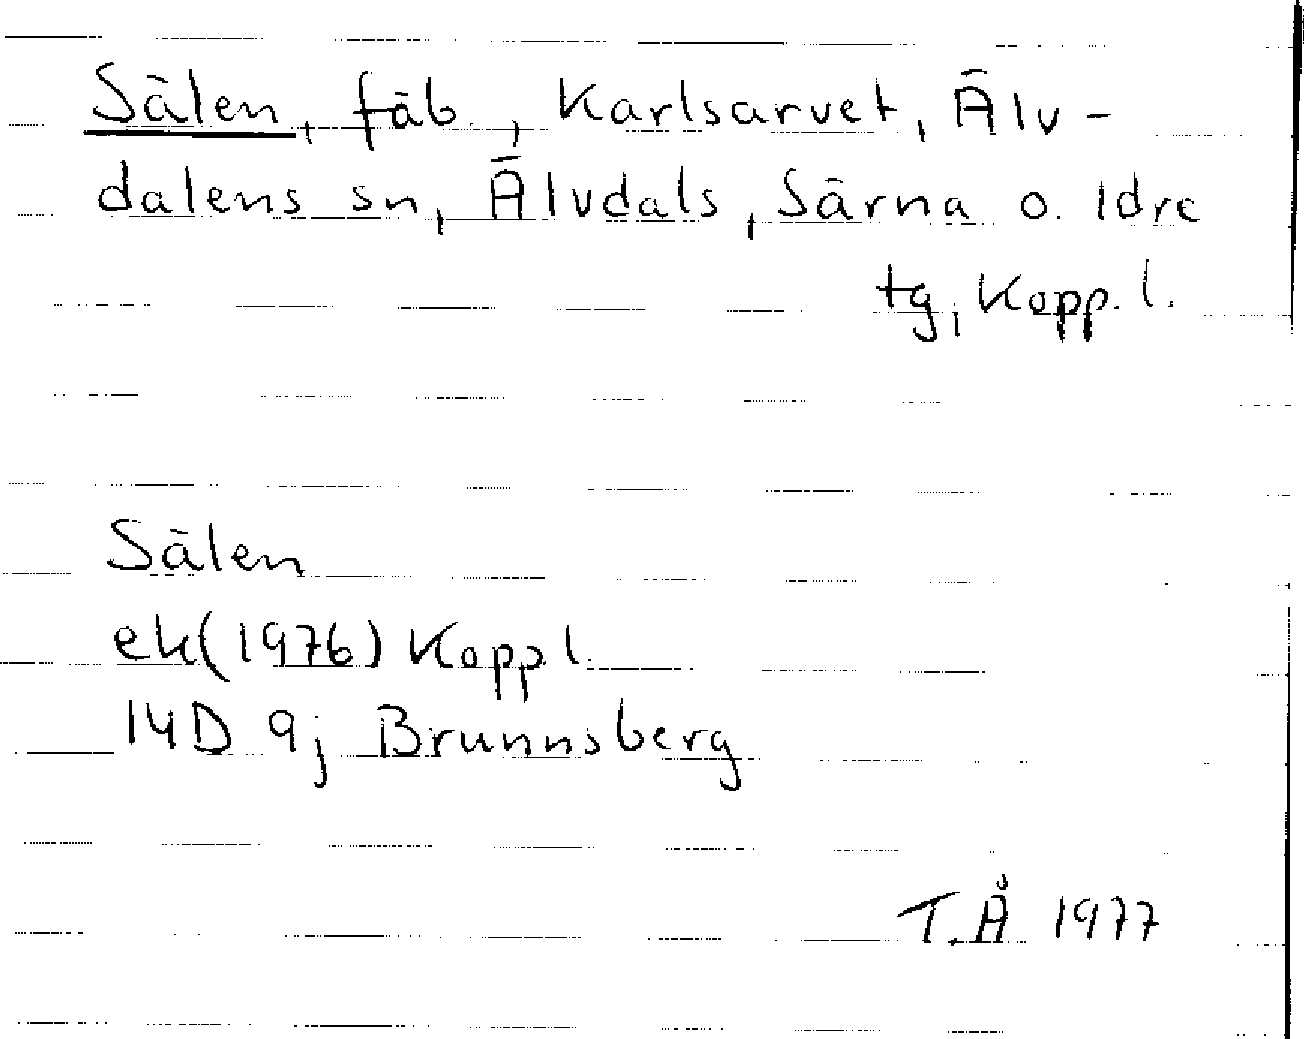 Sälen, fäb., Karlsarvet, Älv-
dalens sn, Älvdals, Särna o. Idre
tg, Kopp. l.
Sälen
ek(1976) Kopp l.
14D 9j Brunnsberg
T.Å 1977